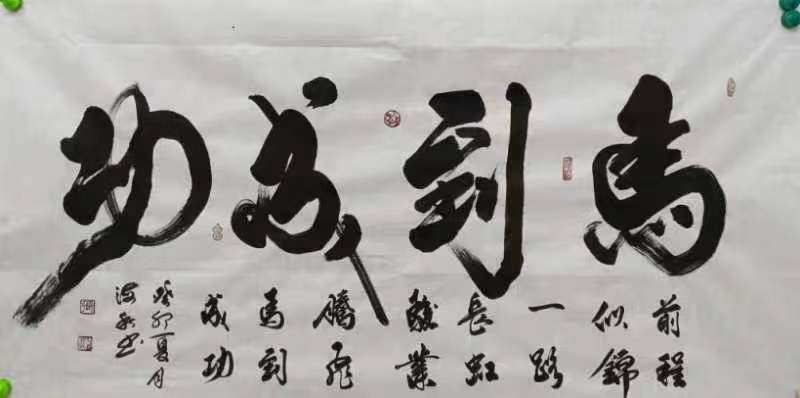 馬到成功
前程
似錦
一路
長虹
駿業
騰飛
馬到
成功
癸卯夏月
海书